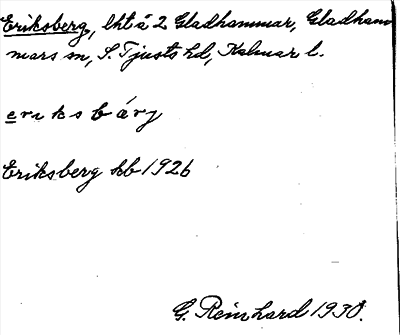 Eriksberg, lht å 2 Gladhammar, Gladham
mars sn, S. Tjusts hd, Kalmar l.
eriksbárj
Eriksberg kb 1926
G. Reinhard 1930.